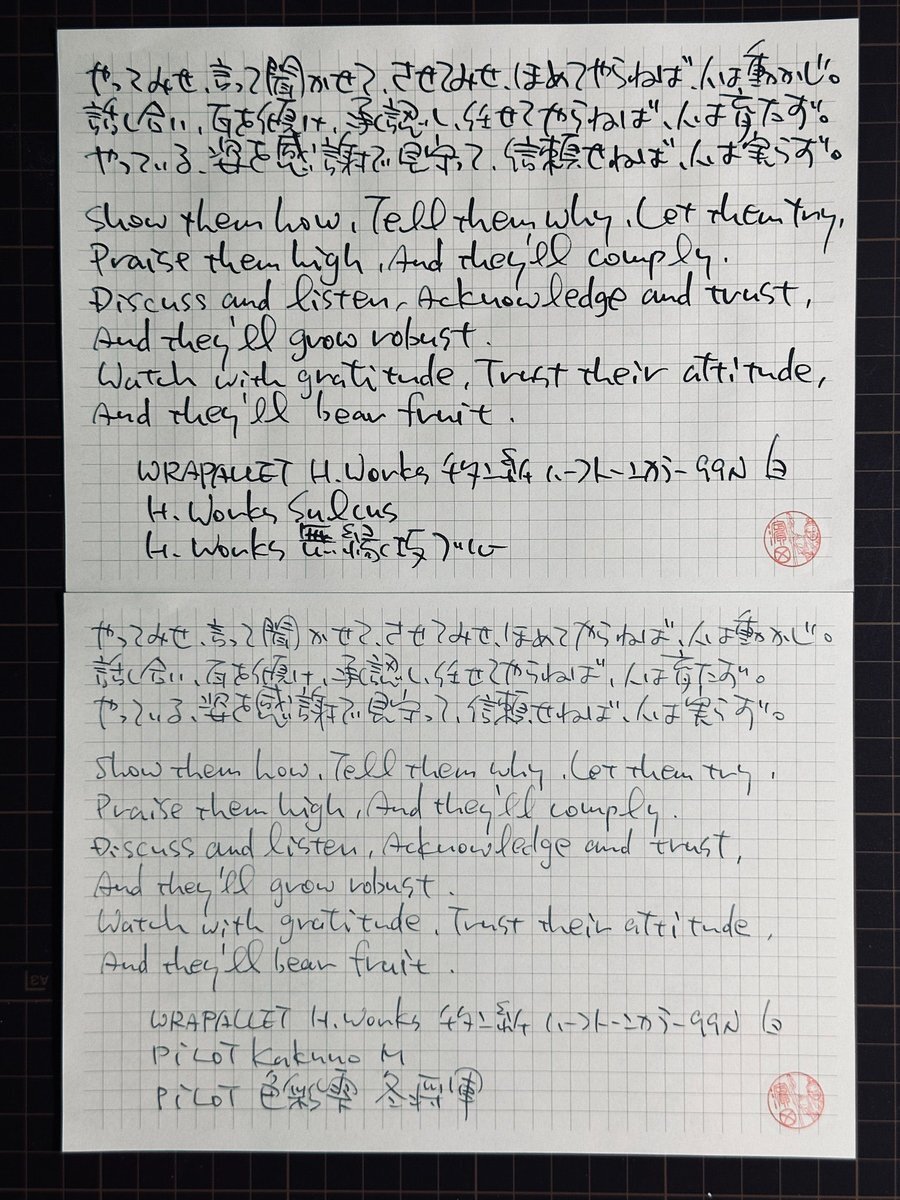 やってみせ、言って聞かせて、させてみせ、ほめてやらねば、人は動かじ。
話し合い、耳を傾け、承認し、任せてやらねば、人は育たず。
やっている、姿を感謝で見守って、信頼せねば、人は実らず。
Show them how, Tell them why, Let them try,
Praise them high, And they'll comply.
Discuss and listen, Acknowledge and trust,
And they'll grow robust.
Watch with gratitude, Trust their attitude,
And they'll bear fruit.
WRAPALLET H.Works 99N 白
H.Works Sulcus
H.Works
やってみせ、言って聞かせて、させてみせ、ほめてやらねば、人は動かじ。
話し合い、耳を傾け、承認し、任せてやらねば、人は育たず。
やっている、姿を感謝で見守って、信頼せねば、人は実らず。
Show them how, Tell them why, Let them try,
Praise them high, And they'll comply.
Discuss and listen, Acknowledge and trust,
And they'll grow robust.
Watch with gratitude, Trust their attitude,
And they'll bear fruit.
WRAPALLET H.Works 99N 白
PiLOT Kakuno M
PiLOT 色彩雫 冬将軍
A3